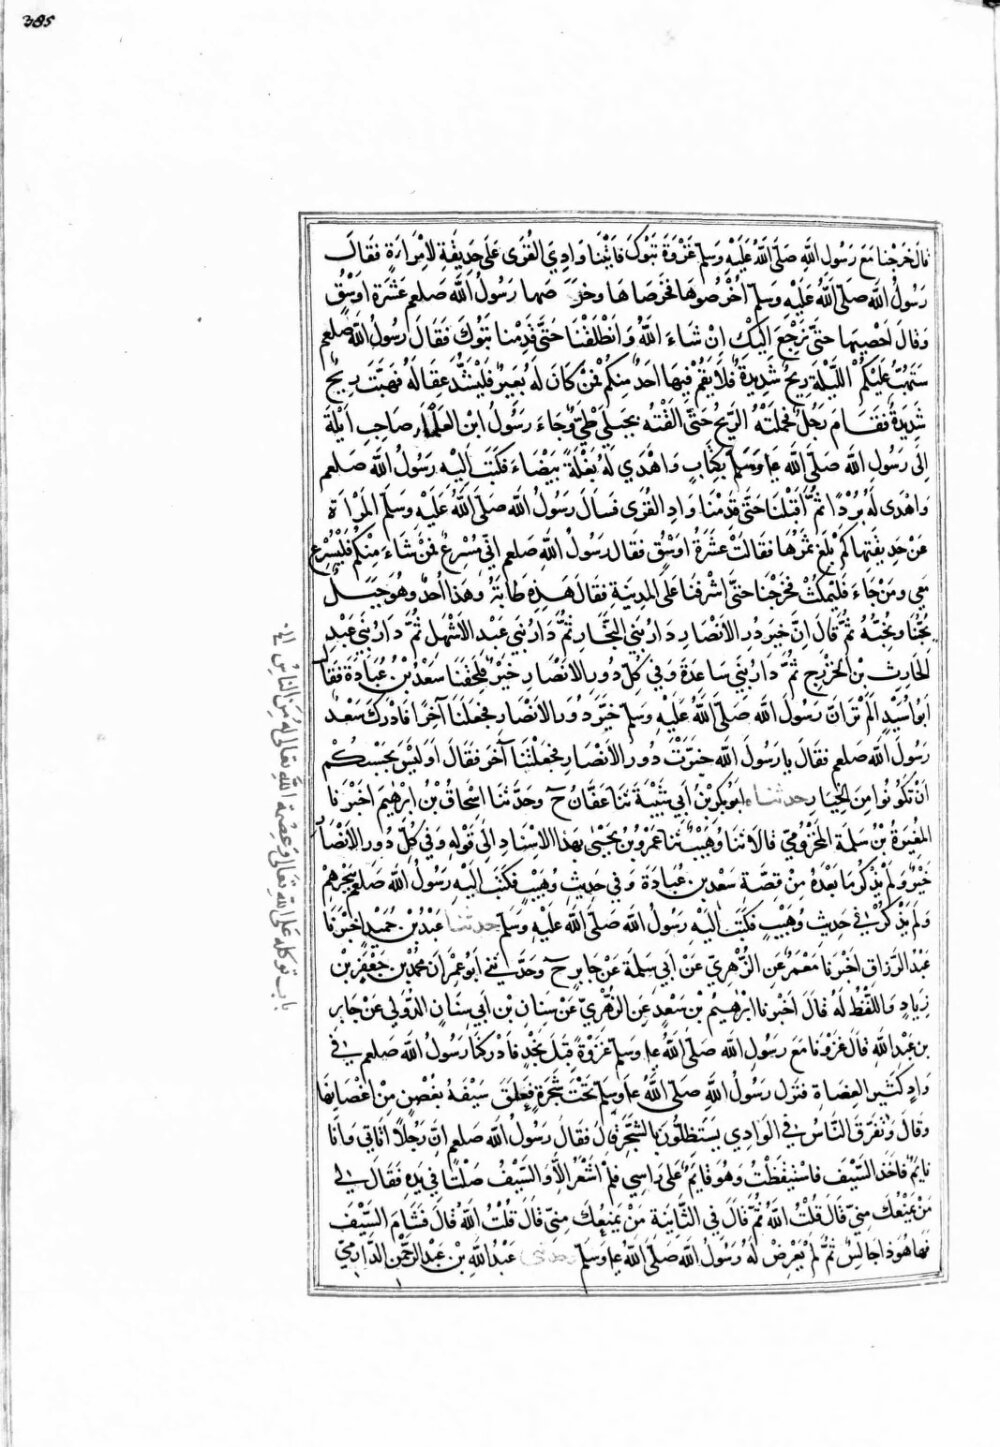 385
قال خرجنا مع رسول الله صلى الله عليه وسلم غزوة تبوك فاتينا وادي القرى على حديقة لامراة فقال
رسول الله صلى الله عليه وسلم اخرصوها فخرصناها وخرصها رسول الله صلعم عشرة اوسق
وقال احصيها حتى نرجع اليك ان شاء الله وانطلقنا حتى قدمنا تبوك فقال رسول الله صلعم
ستهب عليكم الليلة ريح شديدة فلا يقم فيها احد منكم فمن كان له بعير فليشد عقاله فهبت ريح
شديدة فقام رجل فحملته الريح حتى القته بجبلي طي وجاء رسول ابن العلماء صاحب ايلة
الى رسول الله صلى الله عليه وسلم بكتاب واهدي له بغلة بيضاء فكتب اليه رسول الله صلعم
واهدى له بردا ثم اقبلنا حتى قدمنا واد القرى فسال رسول الله صلى الله عليه وسلم المراة
عن حديقتها كم بلغ ثمرها فقالت عشرة اوسق فقال رسول الله صلعم اني مسرع فمن شاء منكم فليسرع
معي ومن جاء فليمكث فخرجنا حتى اشرفنا على المدينة فقال هذه طابة وهذا احد وهو جبل
يحبنا ونحبه ثم قال ان خير دور الانصار دار بني النجار ثم دار بني عبد الاشهل ثم دار بني عبد
الحارث بن الخزرج ثم دار بني ساعدة وفي كل دور الانصار خير فلحقنا سعد بن عبادة فقال
ابو اسيد الم تر ان رسول الله صلى الله عليه وسلم خير دور الانصار فجعلنا آخرا فادرك سعد
رسول الله صلعم فقال يا رسول الله خيرت دور الانصار فجعلتنا آخر فقال اوليس بحسبكم
ان تكونوا من الخيار حدثناه ابو بكر بن ابي شيبة ثنا عفان ح وحدثنا اسحاق بن ابرهيم اخبرنا
المغيرة بن سلمة المخزومي قالا ثنا وهيب ثنا عمرو بن يحيى بهذا الاسناد الى قوله وفي كل دور الانصار
خير ولم يذكر ما بعده من قصة سعد بن عبادة وفي حديث وهيب فكتب اليه رسول الله صلعم ببحرهم
ولم يذكر في حديث وهيب فكتب اليه رسول الله صلى الله عليه وسلم حدثنا عبد بن حميد اخبرنا
عبد الرزاق اخبرنا معمر عن الزهري عن ابي سلمة عن جابر ح وحدثني ابو عمران محمد بن جعفر بن
زياد واللفظ له قال اخبرنا ابرهيم بن سعد عن الزهري عن سنان بن ابي سنان الدولي عن جابر
بن عبد الله قال غزونا مع رسول الله صلى الله عليه وسلم غزوة قبل نجد فادركنا رسول الله صلعم في
واد كثير العضاة فنزل رسول الله صلى الله عليه وسلم تحت شجرة فعلق سيفه بغصن من اغصانها
وقال وتفرق الناس في الوادي يستظلون بالشجر قال فقال رسول الله صلعم ان رجلا اتاني وانا
نايم فاخذ السيف فاستيقظت وهو قايم على راسي فلم اشعر الا والسيف صلتا في يده فقال لي
من يمنعك مني قال قلت الله ثم قال في الثانية من يمنعك مني قال قلت الله قال فشام السيف
فها هو ذا جالس ثم لم يعرض له رسول الله صلى الله عليه وسلم وحدثني عبد الله بن عبد الرحمن الدارمي
باب توكله على الله تعالى وعصمة الله تعالى له من الناس